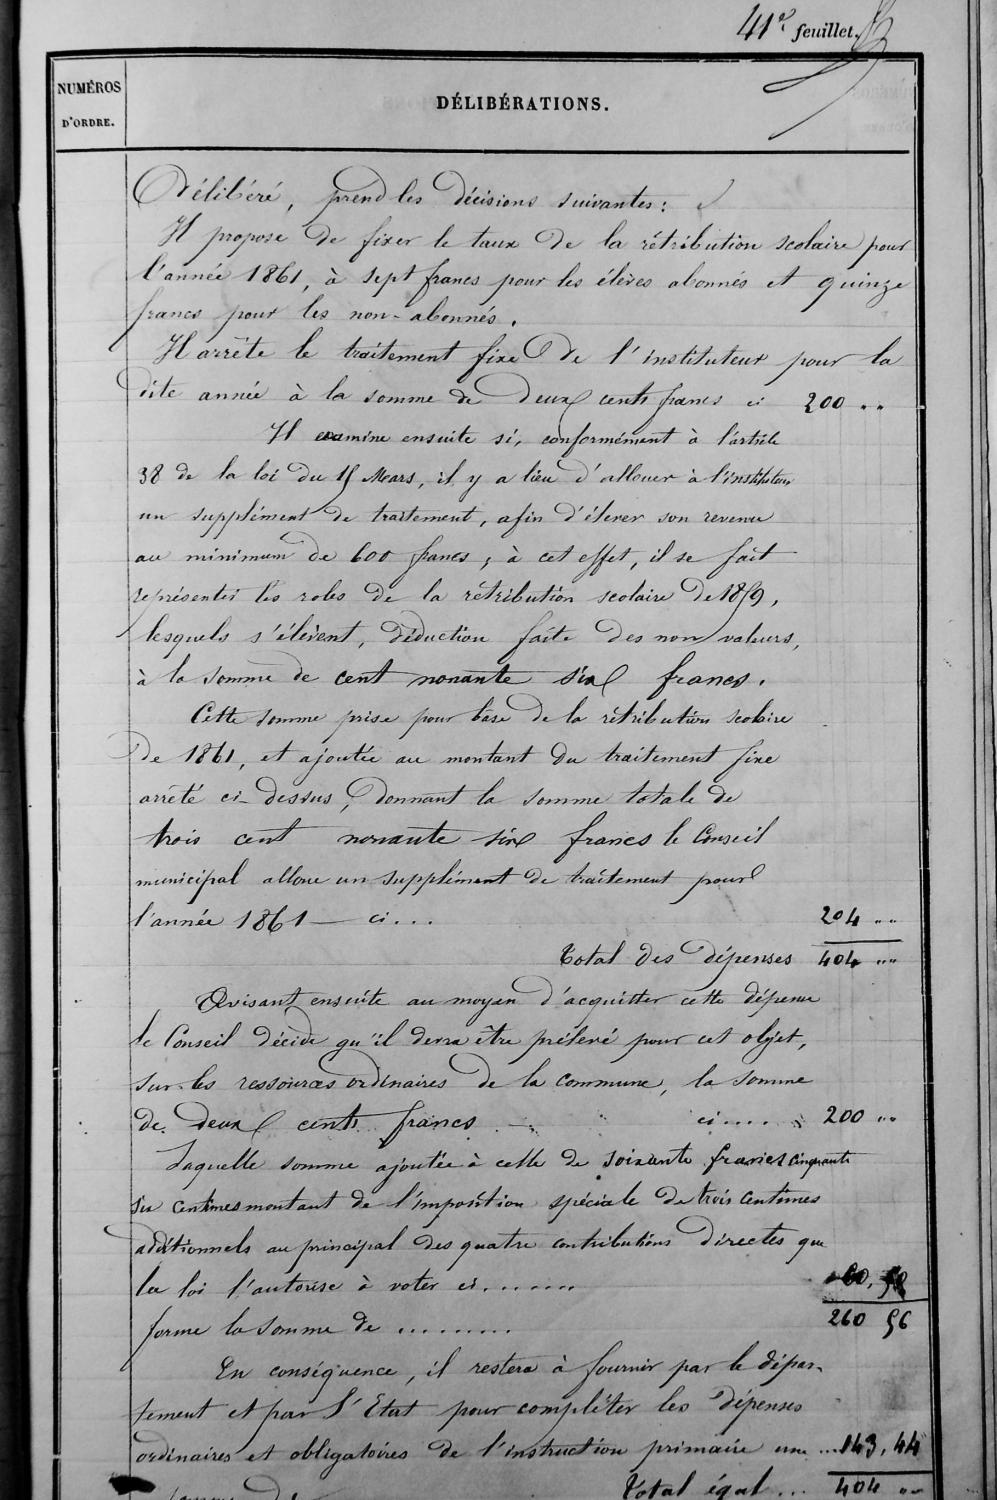 41e feuillet.
NUMÉROS
D'ORDRE.
DÉLIBÉRATIONS.
Délibéré, prend les décisions suivantes:
Il propose de fixer le taux de la rétribution scolaire pour
l'année 1861, à sept francs pour les élèves abonnés et quinze
francs pour les non-abonnés.
Il arrête le traitement fixe de l'instituteur pour la
dite année à la somme de deux cents francs ci 200 ..
Il examine ensuite si, conformément à l'article
38 de la loi du 15 Mars, il y a lieu d'allouer à l'instituteur
un supplément de traitement, afin d'élever son revenu
au minimum de 600 francs; à cet effet, il se fait
représenter les roles de la rétribution scolaire de 1859,
lesquels s'élèvent, déduction faite des non valeurs,
à la somme de cent nonante six francs.
Cette somme prise pour base de la rétribution scolaire
de 1861, et ajoutée au montant du traitement fixe
arrêté ci-dessus, donnant la somme totale de
trois cent nonante six francs le Conseil
municipal alloue un supplément de traitement pour
l'année 1861 — ci... 204 ..
Total des dépenses 404 ..
Avisant ensuite au moyen d'acquitter cette dépense
le Conseil décide qu'il devra être prélevé pour cet objet,
sur les ressources ordinaires de la commune, la somme
de deux cents francs ci.... 200 ..
Laquelle somme ajoutée à celle de soixante francs cinquante
six centimes montant de l'imposition spéciale de trois centimes
additionnels au principal des quatre contributions directes que
la loi l'autorise à voter ci....... 60,
forme la somme de ......... 260 56
En conséquence, il restera à fournir par le dépar-
tement et par l'Etat pour compléter les dépenses
ordinaires et obligatoires de l'instruction primaire une ...143,44
Total égal... 404 ..